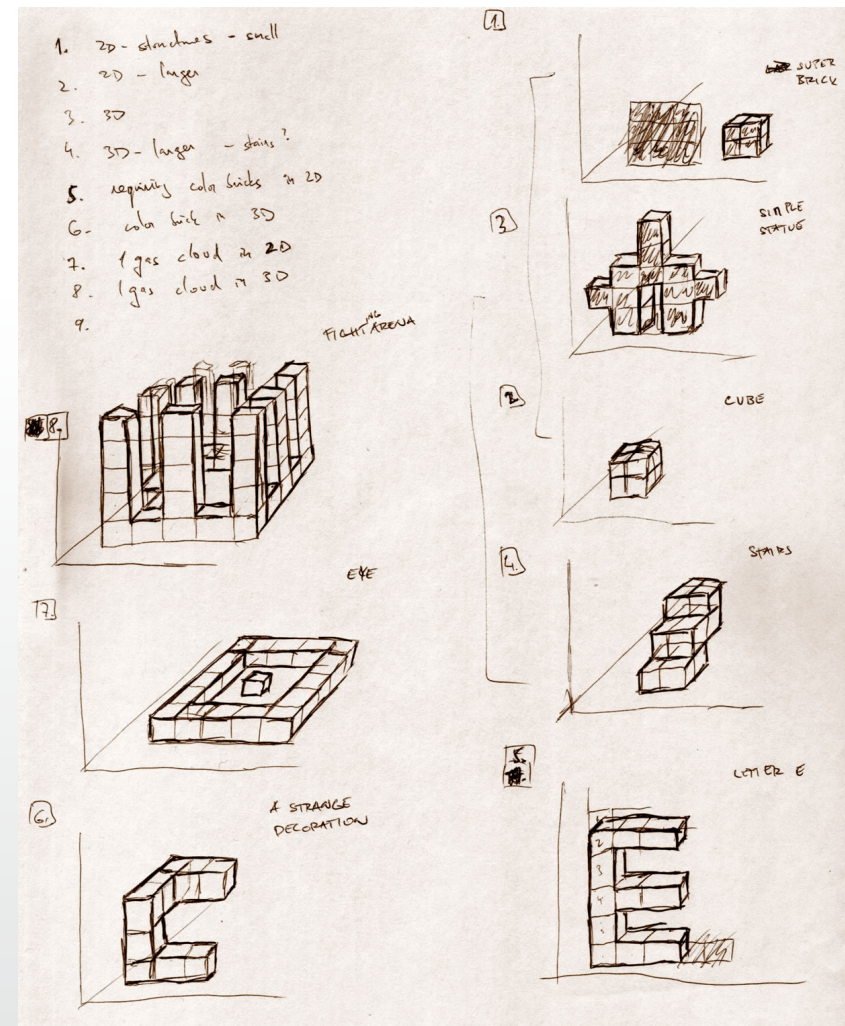 1. 2D - structures - small
2. 2D - larger
3. 3D
4. 3D - larger - stairs?
5. requiring color bricks in 2D
6. color brick in 3D
7. 1 gas cloud in 2D
8. 1 gas cloud in 3D
9.
FIGHTING ARENA
8.
EYE
7.
A STRANGE
DECORATION
6.
1.
SUPER
BRICK
3.
SIMPLE
STATUE
2.
CUBE
4.
STAIRS
5.
LETTER E
1
2
3
4
5